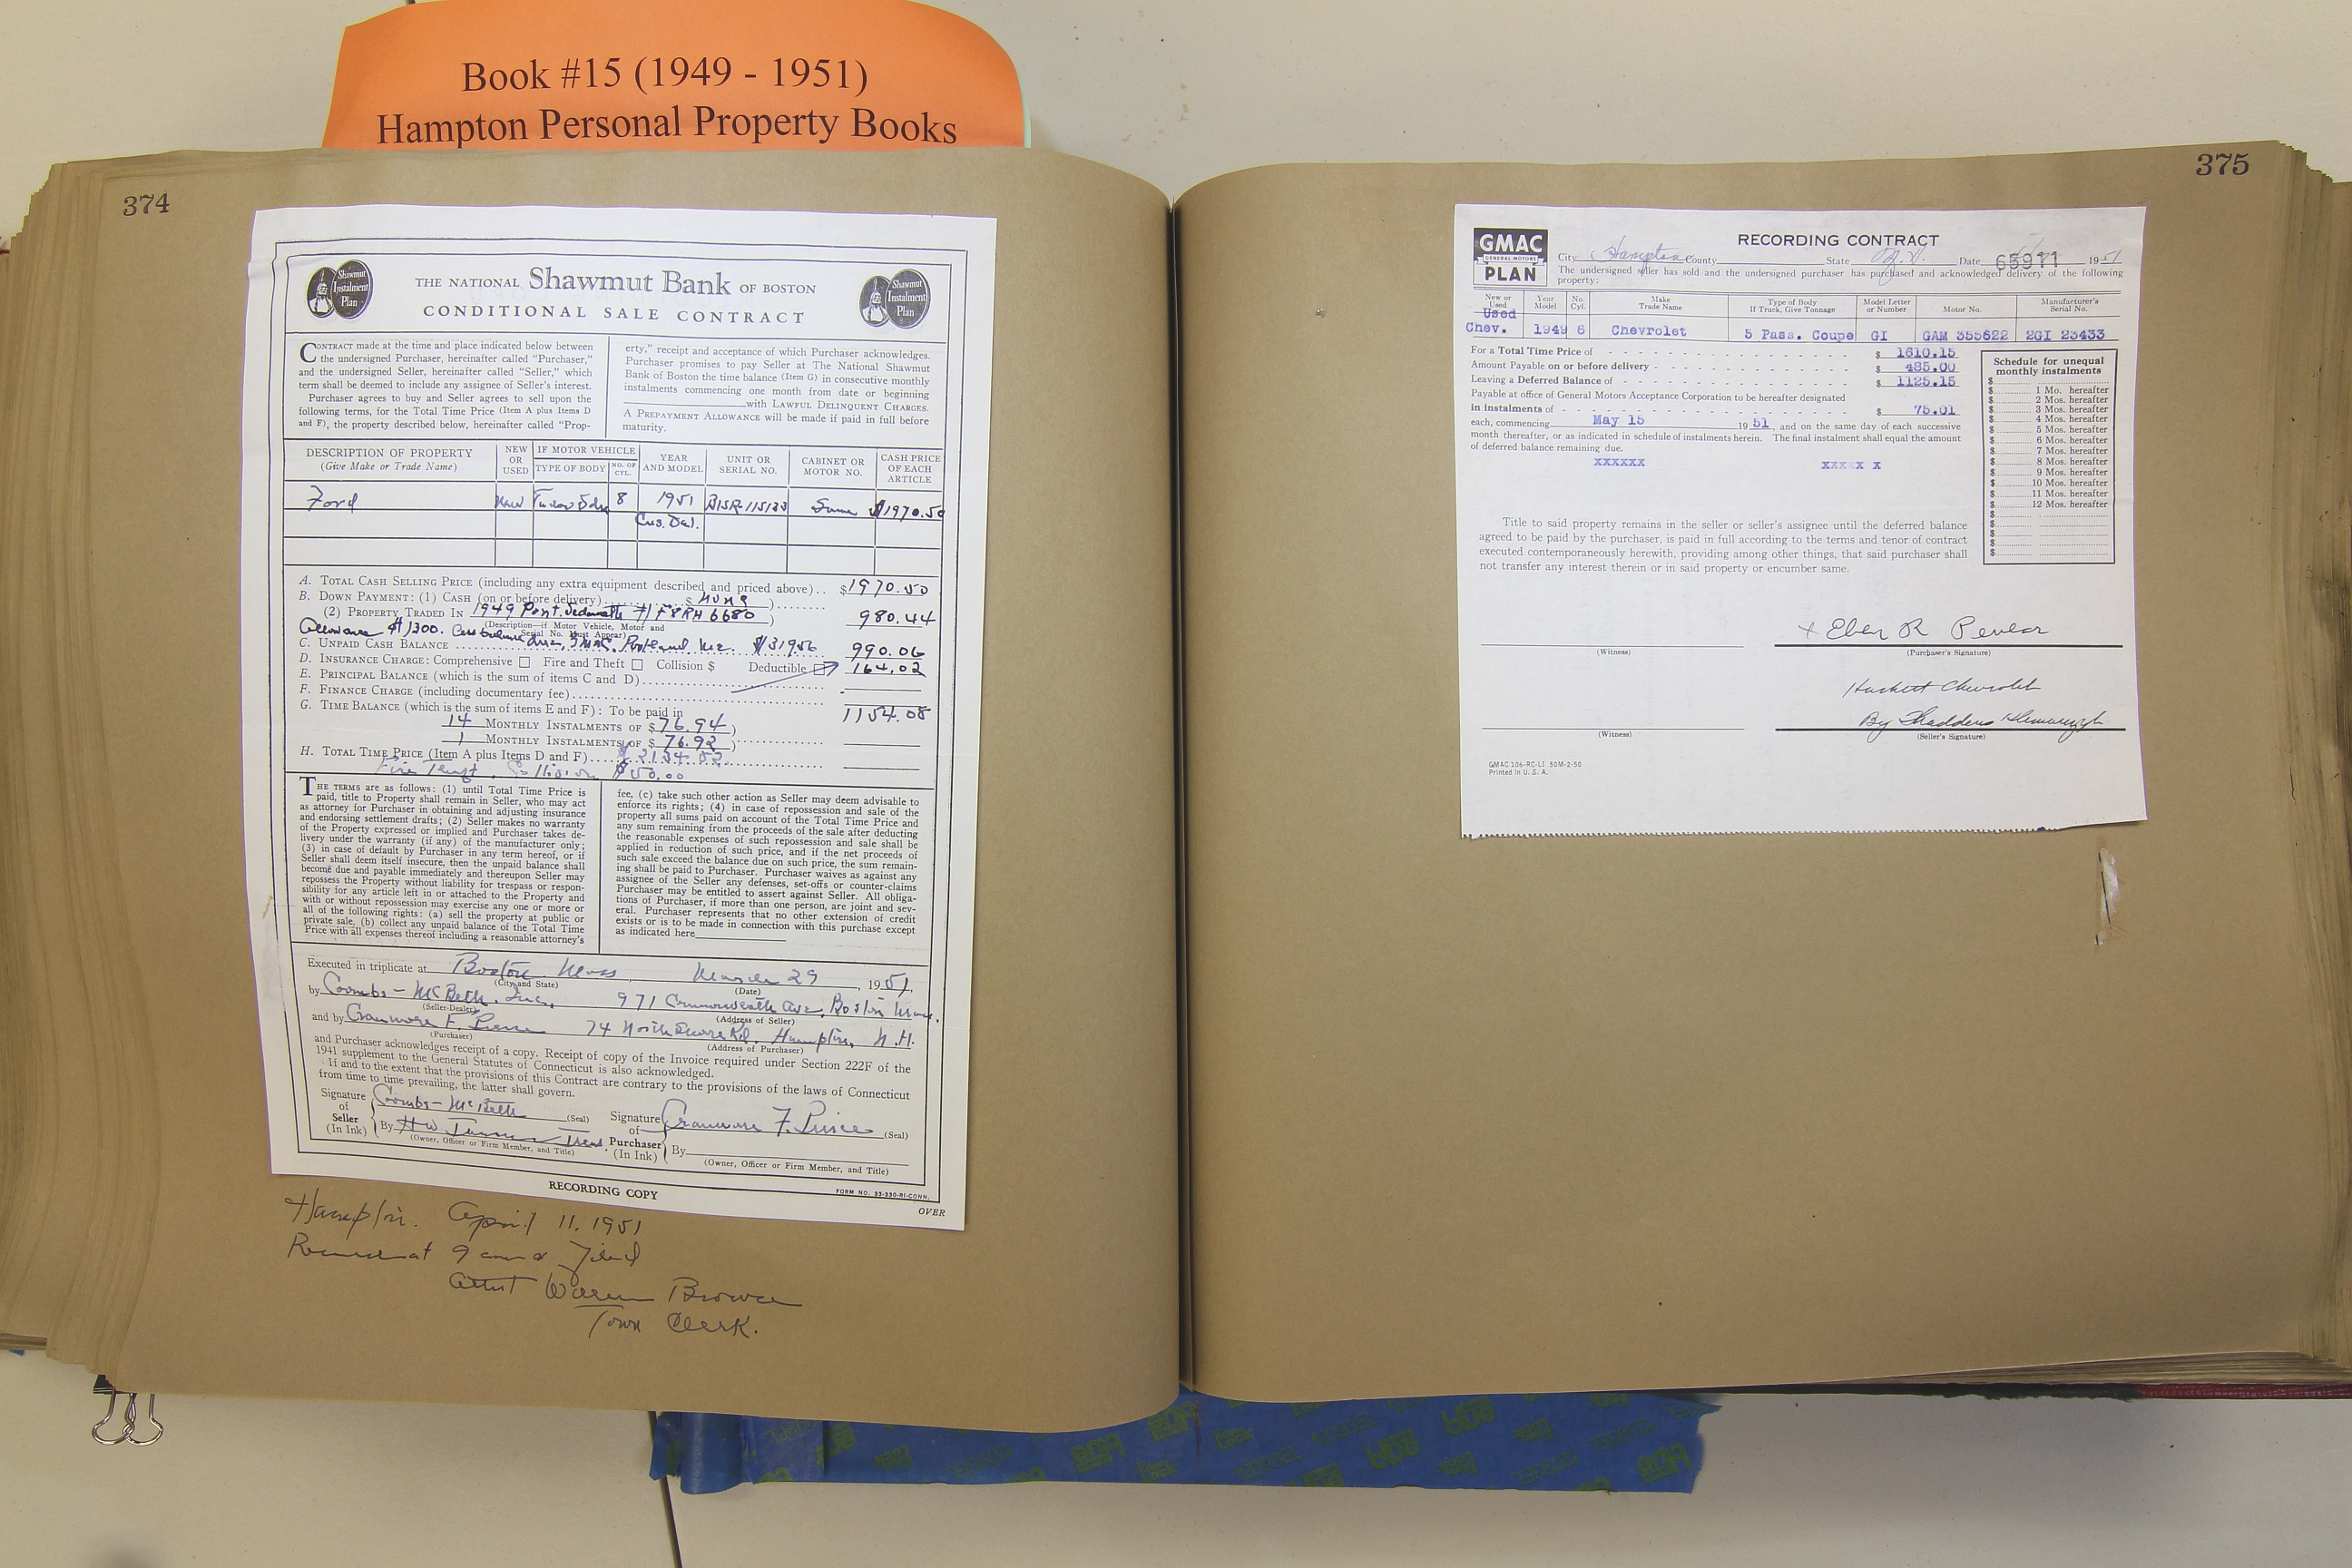 Book #15 (1949 - 1951)
Hampton Personal Property Books
374
Shawmut Instalment Plan
THE NATIONAL Shawmut Bank OF BOSTON
Shawmut Instalment Plan
CONDITIONAL SALE CONTRACT
CONTRACT made at the time and place indicated below between
the undersigned Purchaser, hereinafter called "Purchaser,"
and the undersigned Seller, hereinafter called "Seller," which
term shall be deemed to include any assignee of Seller's interest.
Purchaser agrees to buy and Seller agrees to sell upon the
following terms, for the Total Time Price (Item A plus Items D
and F), the property described below, hereinafter called "Prop-
erty," receipt and acceptance of which Purchaser acknowledges.
Purchaser promises to pay Seller at The National Shawmut
Bank of Boston the time balance (Item G) in consecutive monthly
instalments commencing one month from date or beginning
with LAWFUL DELINQUENT CHARGES.
A PREPAYMENT ALLOWANCE will be made if paid in full before
maturity.
DESCRIPTION OF PROPERTY (Give Make or Trade Name)
NEW OR USED
IF MOTOR VEHICLE
TYPE OF BODY
NO. OF CYL.
YEAR AND MODEL
UNIT OR SERIAL NO.
CABINET OR MOTOR NO.
CASH PRICE OF EACH ARTICLE
Ford New Tudor Sdn 8 1951 B1SR-115133 Same $1970.50
Cus. Del.
A. TOTAL CASH SELLING PRICE (including any extra equipment described and priced above).. $1970.50
B. DOWN PAYMENT: (1) CASH (on or before delivery) $ none
(2) PROPERTY TRADED IN 1949 Pont. # F8RH 6680 980.44
(Description—if Motor Vehicle, Motor and
Serial No. Must Appear)
Allowance $1300. GMAC, Portland Me. $319.56
C. UNPAID CASH BALANCE 990.06
D. INSURANCE CHARGE: Comprehensive Fire and Theft Collision $ Deductible 164.02
E. PRINCIPAL BALANCE (which is the sum of items C and D)
F. FINANCE CHARGE (including documentary fee)
G. TIME BALANCE (which is the sum of items E and F): To be paid in 1154.08
14 MONTHLY INSTALMENTS OF $76.94)
1 MONTHLY INSTALMENTS OF $76.92)
H. TOTAL TIME PRICE (Item A plus Items D and F) $2134.52
Fire Theft, Collision $50.00
THE TERMS are as follows: (1) until Total Time Price is
paid, title to Property shall remain in Seller, who may act
as attorney for Purchaser in obtaining and adjusting insurance
and endorsing settlement drafts; (2) Seller makes no warranty
of the Property expressed or implied and Purchaser takes de-
livery under the warranty (if any) of the manufacturer only;
(3) in case of default by Purchaser in any term hereof, or if
Seller shall deem itself insecure, then the unpaid balance shall
become due and payable immediately and thereupon Seller may
repossess the Property without liability for trespass or respon-
sibility for any article left in or attached to the Property and
with or without repossession may exercise any one or more or
all of the following rights: (a) sell the property at public or
private sale, (b) collect any unpaid balance of the Total Time
Price with all expenses thereof including a reasonable attorney's
fee, (c) take such other action as Seller may deem advisable to
enforce its rights; (4) in case of repossession and sale of the
property all sums paid on account of the Total Time Price and
any sum remaining from the proceeds of the sale after deducting
the reasonable expenses of such repossession and sale shall be
applied in reduction of such price, and if the net proceeds of
such sale exceed the balance due on such price, the sum remain-
ing shall be paid to Purchaser. Purchaser waives as against any
assignee of the Seller any defenses, set-offs or counter-claims
Purchaser may be entitled to assert against Seller. All obliga-
tions of Purchaser, if more than one person, are joint and sev-
eral. Purchaser represents that no other extension of credit
exists or is to be made in connection with this purchase except
as indicated here
Executed in triplicate at Boston Mass, March 29, 1951.
(City and State) (Date)
by Coombs - McBeth. Inc. 971 Commonwealth Ave, Boston Mass.
(Seller-Dealer) (Address of Seller)
and by Cranmore F. Pierce 74 North Shore Rd. Hampton, N.H.
(Purchaser) (Address of Purchaser)
and Purchaser acknowledges receipt of a copy. Receipt of copy of the Invoice required under Section 222F of the
1941 supplement to the General Statutes of Connecticut is also acknowledged.
If and to the extent that the provisions of this Contract are contrary to the provisions of the laws of Connecticut
from time to time prevailing, the latter shall govern.
Signature of Seller (In Ink)
Coombs - McBeth (Seal)
By H W Treas.
(Owner, Officer or Firm Member, and Title)
Signature of Purchaser (In Ink)
Cranmore F. Pierce (Seal)
By
(Owner, Officer or Firm Member, and Title)
RECORDING COPY
FORM NO. 33-330-RI-CONN.
OVER
Hampton. April 11. 1951
Received at 9 am & filed
Attest Warren Brown
Town Clerk.
375
GMAC
GENERAL MOTORS
PLAN
RECORDING CONTRACT
City Hampton County State N.H. Date 65911 1951
The undersigned seller has sold and the undersigned purchaser has purchased and acknowledged delivery of the following
property:
New or Used
Year Model
No. Cyl.
Make Trade Name
Type of Body If Truck, Give Tonnage
Model Letter or Number
Motor No.
Manufacturer's Serial No.
Used
Chev. 1949 6 Chevrolet 5 Pass. Coupe GI GAM 355622 2GI 23433
For a Total Time Price of $ 1610.15
Amount Payable on or before delivery $ 485.00
Leaving a Deferred Balance of $ 1125.15
Payable at office of General Motors Acceptance Corporation to be hereafter designated
in instalments of $ 75.01
each, commencing May 15 1951, and on the same day of each successive
month thereafter, or as indicated in schedule of instalments herein. The final instalment shall equal the amount
of deferred balance remaining due.
xxxxxx xxxxx x
Schedule for unequal
monthly instalments
$
$ 1 Mo. hereafter
$ 2 Mos. hereafter
$ 3 Mos. hereafter
$ 4 Mos. hereafter
$ 5 Mos. hereafter
$ 6 Mos. hereafter
$ 7 Mos. hereafter
$ 8 Mos. hereafter
$ 9 Mos. hereafter
$ 10 Mos. hereafter
$ 11 Mos. hereafter
$ 12 Mos. hereafter
$
$
$
$
Title to said property remains in the seller or seller's assignee until the deferred balance
agreed to be paid by the purchaser, is paid in full according to the terms and tenor of contract
executed contemporaneously herewith, providing among other things, that said purchaser shall
not transfer any interest therein or in said property or encumber same.
x Eben R Pevear
(Witness) (Purchaser's Signature)
Huskett Chevrolet
By Thaddeus
(Witness) (Seller's Signature)
GMAC 106-RC-LI 50M-2-50
Printed in U. S. A.